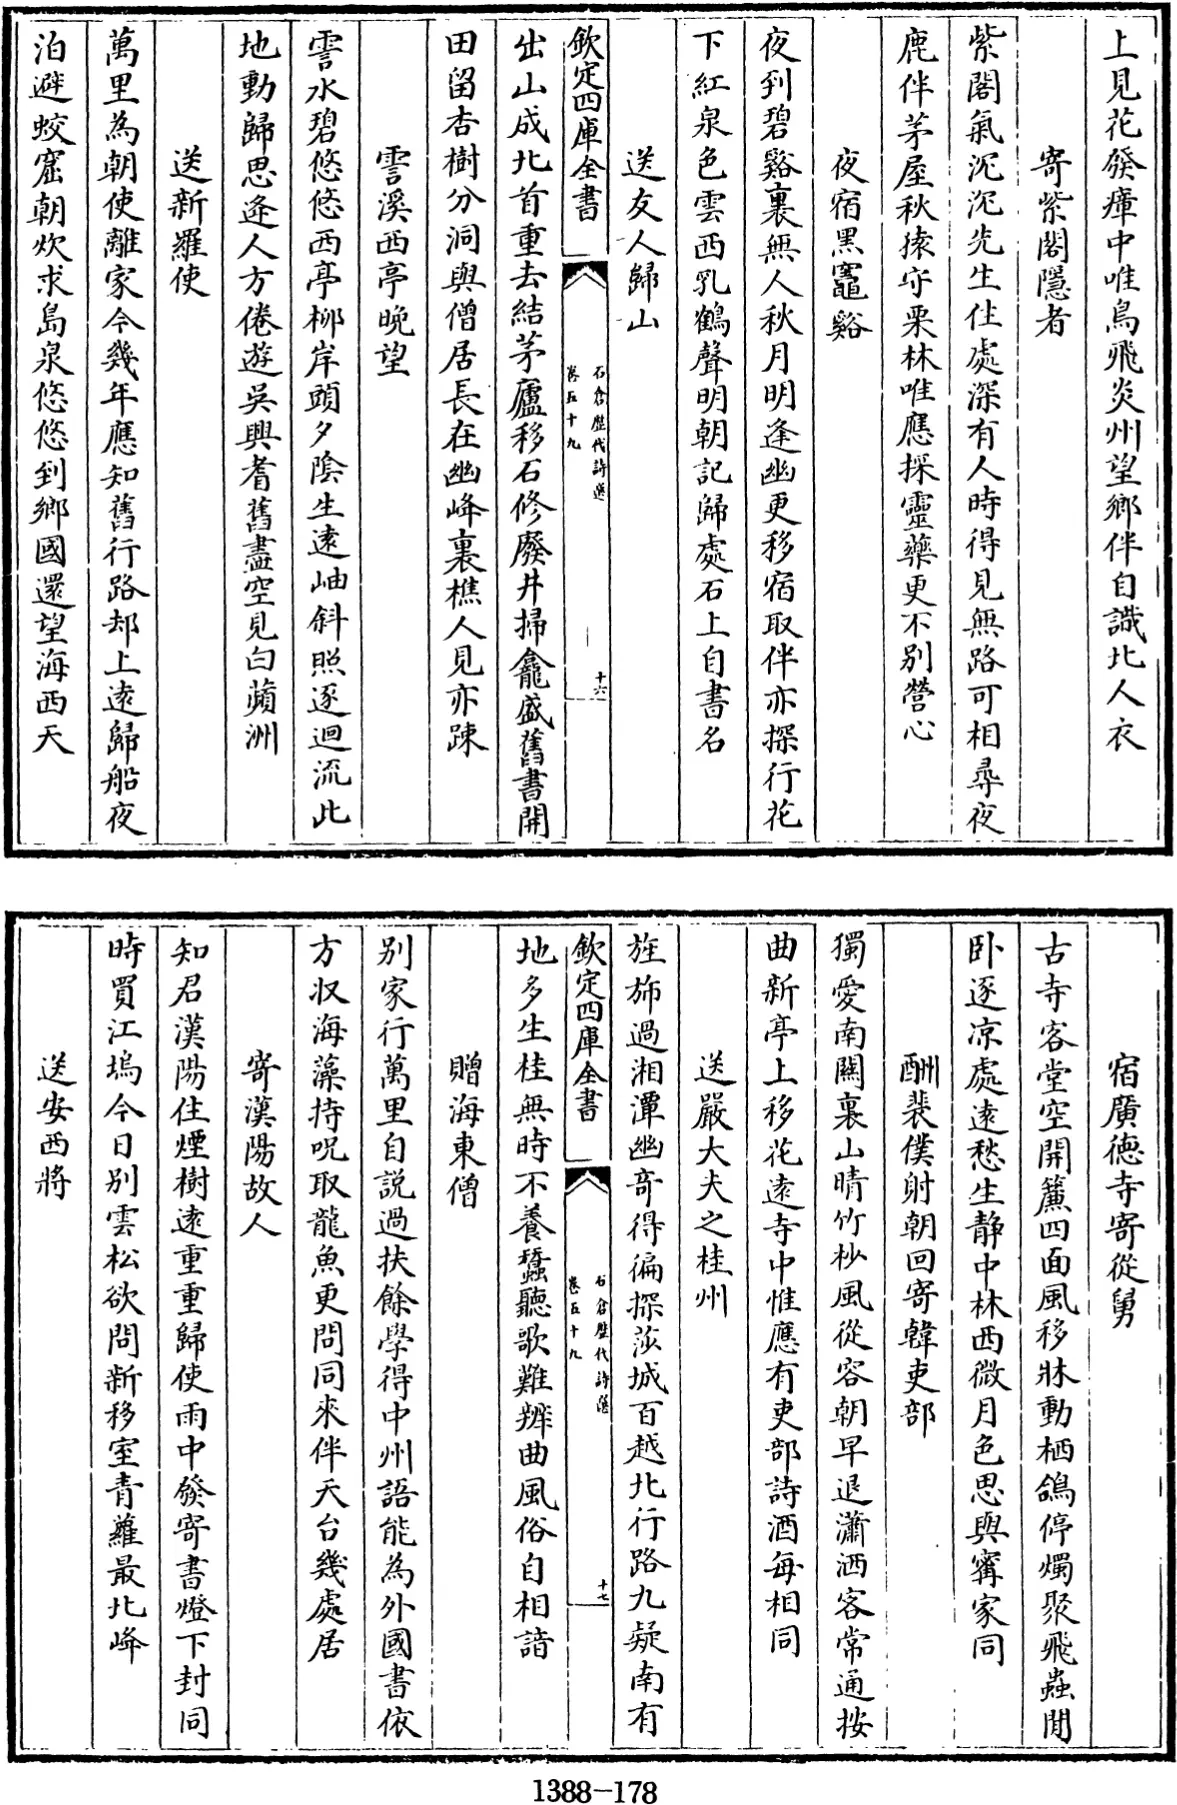 上見花發瘴中唯鳥飛炎州望鄉伴自識北人衣
寄紫閣隱者
紫閣氣沉沉先生住處深有人時得見無路可相尋夜
鹿伴茅屋秋猿守栗林唯應採靈藥更不別營心
夜宿黑竈谿
夜到碧谿裏無人秋月明逢幽更移宿取伴亦探行花
下紅泉色雲西乳鶴聲明朝記歸處石上自書名
送友人歸山
欽定四庫全書
石倉歷代詩選
卷五十九
十六
出山成北首重去結茅廬移石修廢井掃龕盛舊書開
田留杏樹分洞與僧居長在幽峰裏樵人見亦踈
霅溪西亭晚望
霅水碧悠悠西亭柳岸頭夕陰生遠岫斜照逐迴流此
地動歸思逢人方倦遊吳興耆舊盡空見白蘋洲
送新羅使
萬里為朝使離家今幾年應知舊行路却上遠歸船夜
泊避蛟窟朝炊求島泉悠悠到鄉國還望海西天
宿廣德寺寄從舅
古寺客堂空開簾四面風移牀動栖鴿停燭聚飛蟲閒
卧逐凉處遠愁生静中林西微月色思與甯家同
酬裴僕射朝回寄韓吏部
獨愛南關裏山晴竹杪風從容朝早退瀟洒客常通按
曲新亭上移花遠寺中惟應有吏部詩酒每相同
送嚴大夫之桂州
旌斾過湘潭幽奇得徧探莎城百越北行路九疑南有
欽定四庫全書
石倉歷代詩選
卷五十九
十七
地多生桂無時不養蠶聽歌難辨曲風俗自相諳
贈海東僧
別家行萬里自説過扶餘學得中州語能為外國書依
方収海藻持呪取龍魚更問同來伴天台幾處居
寄漢陽故人
知君漢陽住煙樹遠重重歸使雨中發寄書燈下封同
時買江塢今日別雲松欲問新移室青蘿最北峰
送安西將
1388-178